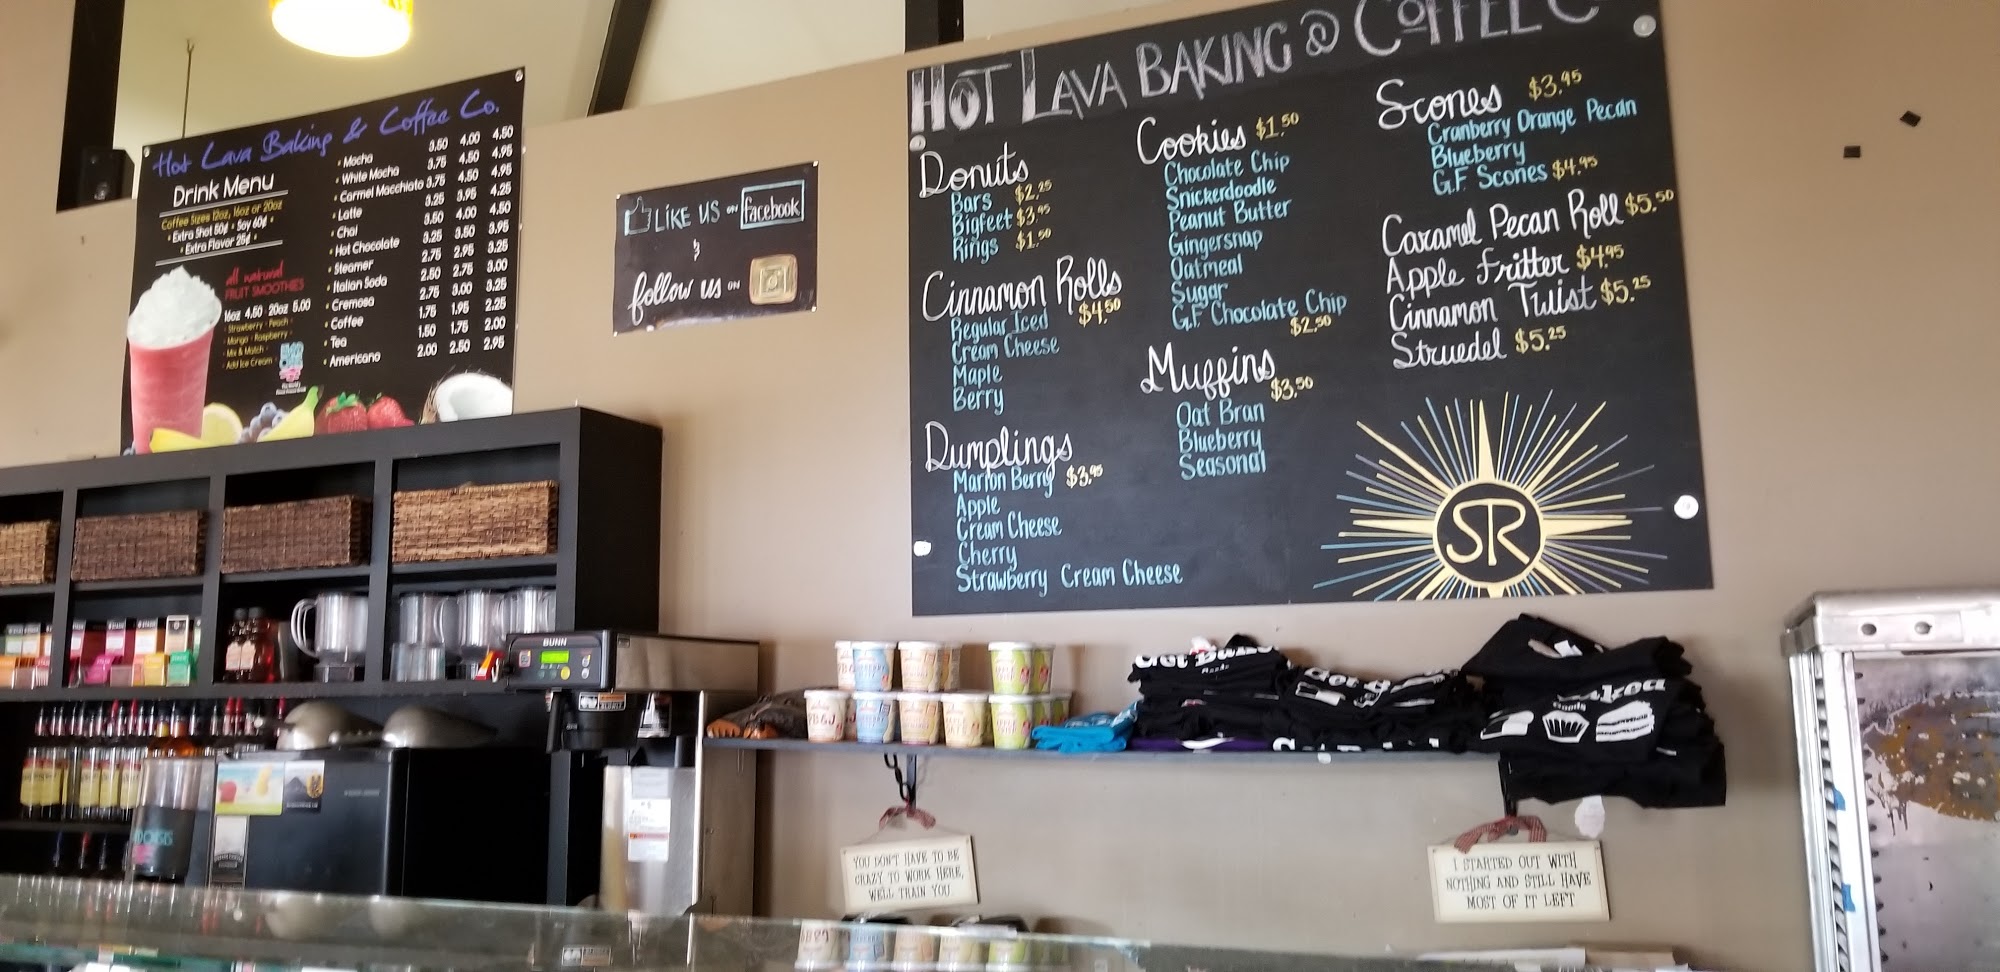 Hot Lava Baking & Coffee Co.
Drink Menu
Coffee Sizes 12oz, 16oz or 20oz
• Extra Shot 50¢ • Soy 60¢ •
• Extra Flavor 25¢ •
all natural
FRUIT SMOOTHIES
16oz 4.50 20oz 5.00
• Strawberry • Peach •
• Mango • Raspberry •
• Mix & Match •
• Add Ice Cream •
• Mocha 3.50 4.00 4.50
• White Mocha 3.75 4.50 4.95
• Carmel Macchiato 3.75 4.50 4.95
• Latte 3.25 3.95 4.25
• Chai 3.50 4.00 4.50
• Hot Chocolate 3.25 3.50 3.95
• Steamer 2.75 2.95 3.25
• Italian Soda 2.50 2.75 3.00
• Cremosa 2.75 3.00 3.25
• Coffee 1.75 1.95 2.25
• Tea 1.50 1.75 2.00
• Americano 2.00 2.50 2.95
LIKE US ON facebook
&
follow us ON
HOT LAVA BAKING @ COFFEE C
Donuts
Bars $2.25
Bigfeet $3.95
Rings $1.50
Cinnamon Rolls
$4.50
Regular Iced
Cream Cheese
Maple
Berry
Dumplings
$3.95
Marion Berry
Apple
Cream Cheese
Cherry
Strawberry Cream Cheese
Cookies $1.50
Chocolate Chip
Snickerdoodle
Peanut Butter
Gingersnap
Oatmeal
Sugar
G.F. Chocolate Chip
$2.50
Muffins
$3.50
Oat Bran
Blueberry
Seasonal
Scones $3.95
Cranberry Orange Pecan
Blueberry
G.F. Scones $4.95
Caramel Pecan Roll $5.50
Apple Fritter $4.95
Cinnamon Twist $5.25
Struedel $5.25
SR
BUNN
PB&J
Got Bake
Goods
YOU DON'T HAVE TO BE
CRAZY TO WORK HERE,
WE'LL TRAIN YOU.
I STARTED OUT WITH
NOTHING AND STILL HAVE
MOST OF IT LEFT